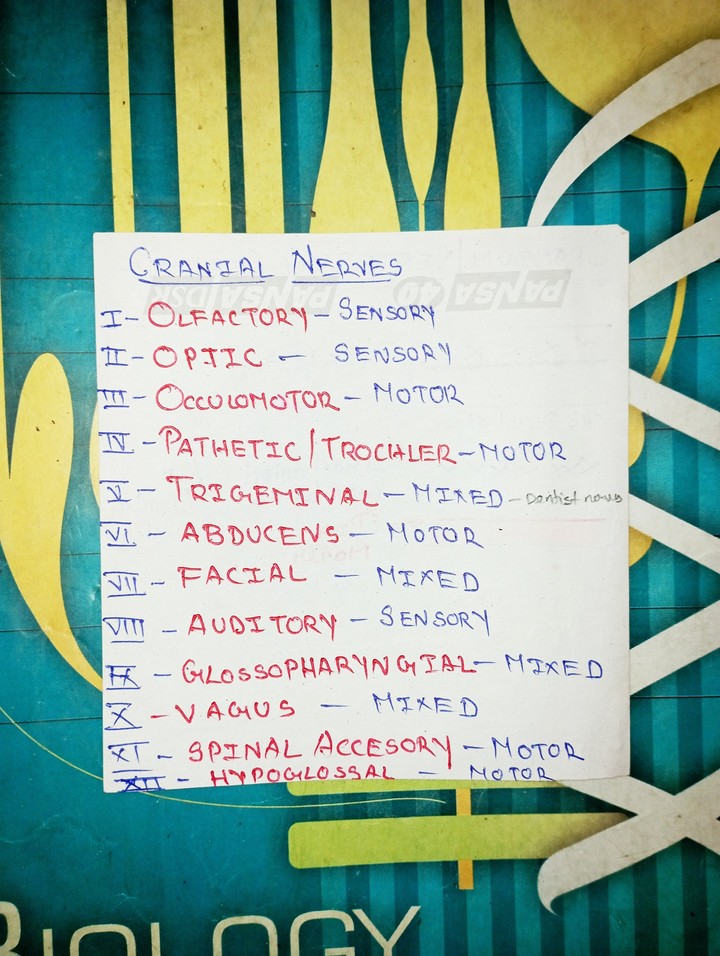 CRANIAL NERVES
I - OLFACTORY - SENSORY
II - OPTIC - SENSORY
III - OCCULOMOTOR - MOTOR
IV - PATHETIC/TROCHLER - MOTOR
V - TRIGEMINAL - MIXED - Dentist nerves
VI - ABDUCENS - MOTOR
VII - FACIAL - MIXED
VIII - AUDITORY - SENSORY
IX - GLOSSOPHARYNGIAL - MIXED
X - VAGUS - MIXED
XI - SPINAL ACCESORY - MOTOR
XII - HYPOGLOSSAL - MOTOR
PANSA 40
PANSA
BIOLOGY